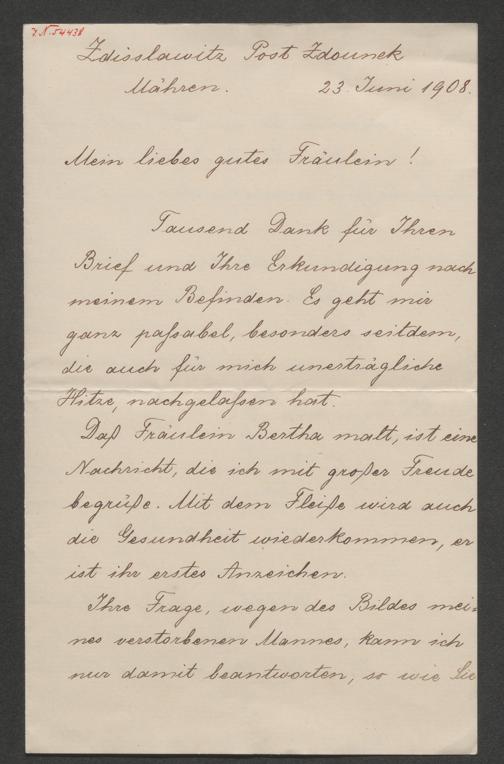 J. N. 54438
Zdisslawitz Post Zdounek
Mähren. 23. Juni 1908.
Mein liebes gutes Fräulein!
Tausend Dank für Ihren
Brief und Ihre Erkundigung nach
meinem Befinden. Es geht mir
ganz paſsabel, besonders seitdem,
die auch für mich unerträgliche
Hitze, nachgelaſsen hat.
Daß Fräulein Bertha malt, ist eine
Nachricht, die ich mit großer Freude
begrüße. Mit dem Fleiße wird auch
die Gesundheit wiederkommen, er
ist ihr erstes Anzeichen.
Ihre Frage, wegen des Bildes mei=
nes verstorbenen Mannes, kann ich
nur damit beantworten, so wie Sie